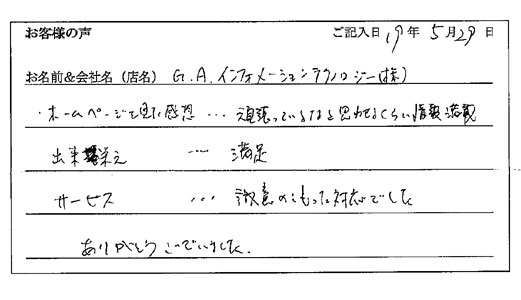 お客様の声 ご記入日 19年 5月29日
お名前&会社名（店名） G.A.インフォメーションテクノロジー(株)
・ホームページを見た感想 … 頑張っているなと思わせるくらい情報満載
出来栄え … 満足
サービス … 誠意のこもった対応でした
ありがとうございました。